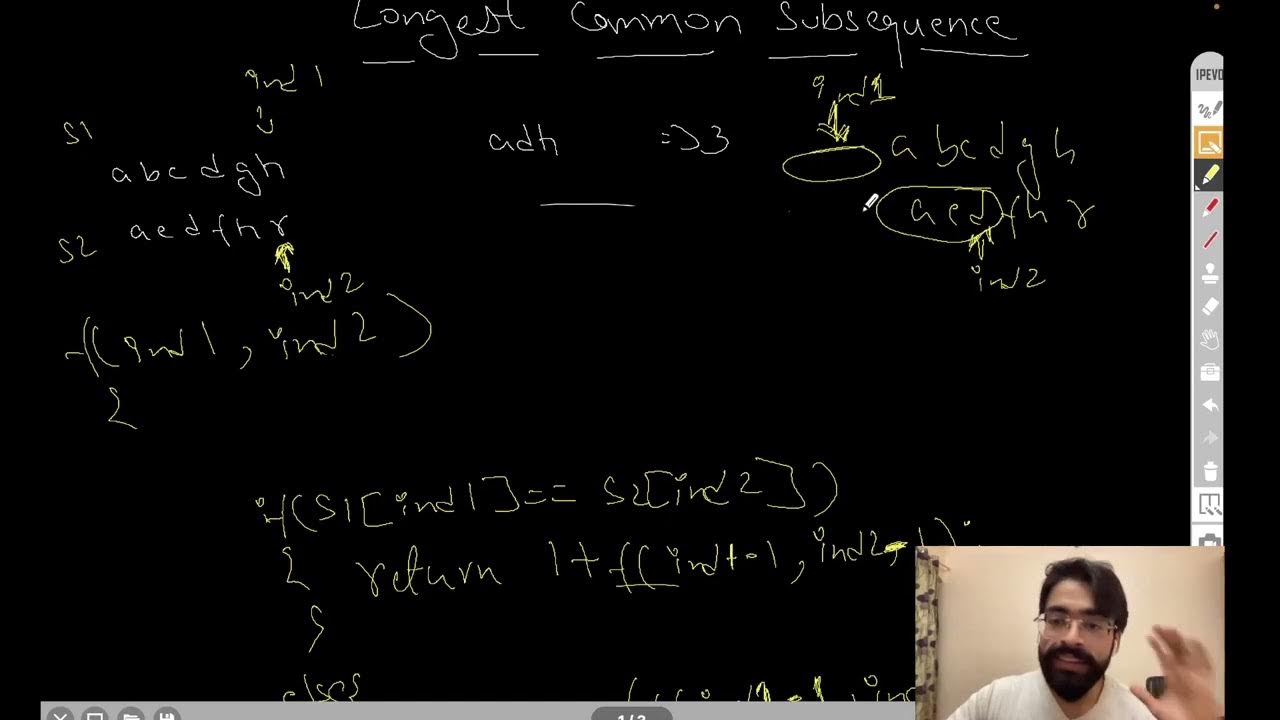 Longest Common Subsequence
ind 1
S1
abcdgh
aedfhr
S2
ind 2
adh => 3
ind1
abcdgh
aedfhr
ind2
f(ind1, ind2)
{
if(S1[ind1]== S2[ind2])
{ return 1+f(ind1-1, ind2-1);
}
IPEVO
1/3